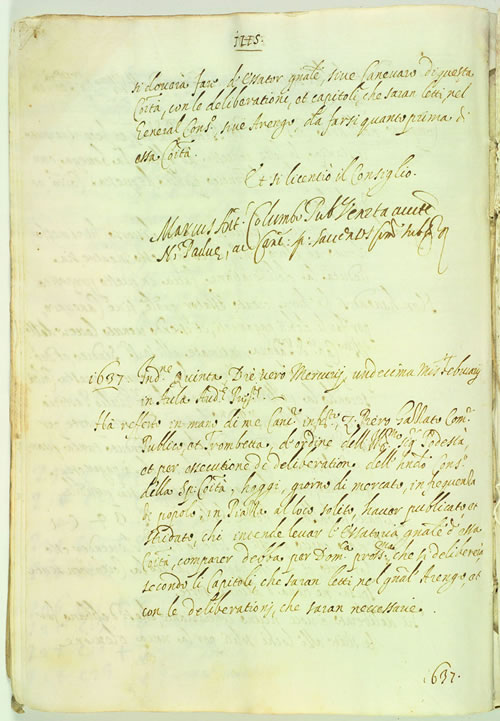 IHS:
si dovera far, d'Essator gnale, sive Canevaro di questa
Coita, con le deliberationi, et capitoli, che saran letti, nel
General Cons.º, sive Arengo, da farsi quanto prima di
essa Coita.
Et si licentio il Consiglio.
Marcus Ant.s Columbo Pub. Ven.ta aucte
Not.
1637. Ind.ne Quinta, Die vero Mercurij, undecima Mens. Februarij
in Aula Aud.
Ha referto in mano di me Canc.
Publico, et Trombetta, d'ordine dell' Sig.r Podesta,
et per essecutione de deliberation dell' Cons.º
della Sp. Coita, hoggi, giorno di mercato, in frequenza
di popolo, in Piazza al loco solito, haver publicato et
stridato, chi intende levar l'Essatoria gnale d'essa
Coita, comparer debba per Dom.ca pross.a, che si deliberera
secondo li Capitoli, che saran letti nel gnal Arengo, et
con le deliberationj, che saran neccessarie.
1637.